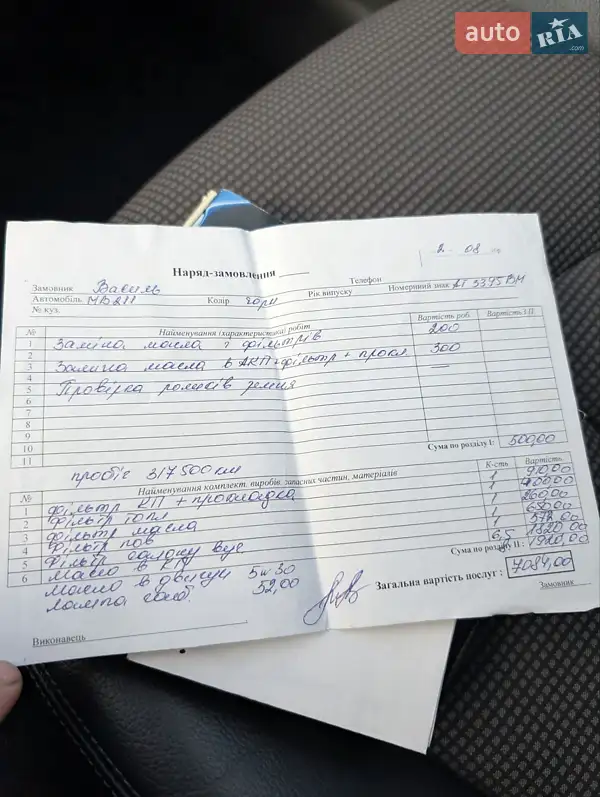 auto RIA .com
2 - 08
Наряд-замовлення
Замовник Василь Телефон
Автомобіль МВ 211 Колір чорн Рік випуску Номерний знак АТ 5375 ВМ
№ куз.
№ Найменування (характеристика) робіт Вартість роб. Вартість З.Ч.
1 Заміна масла і фільтрів 200
2
3 Заміна масла в АКП+фільтр + прокл 300
4
5 Провірка роликів ременя —
6
7
8
9
10
11
Сума по розділу I: 500,00
пробіг 317500 км
№ Найменування комплект. виробів, запасних частин, матеріалів К-сть Вартість
1 фільтр КП + прокладка 1
2 фільтр топл 1
3 фільтр масла 1 260,00
4 фільтр пов 1 650,00
5 фільтр салону вуг. 1
6 Масло в КП 1320,00
Масло в двигун 5w30 6,5
Лампа габ. 52,00
Сума по розділу II:
Загальна вартість послуг: 7084,00
Замовник
Виконавець